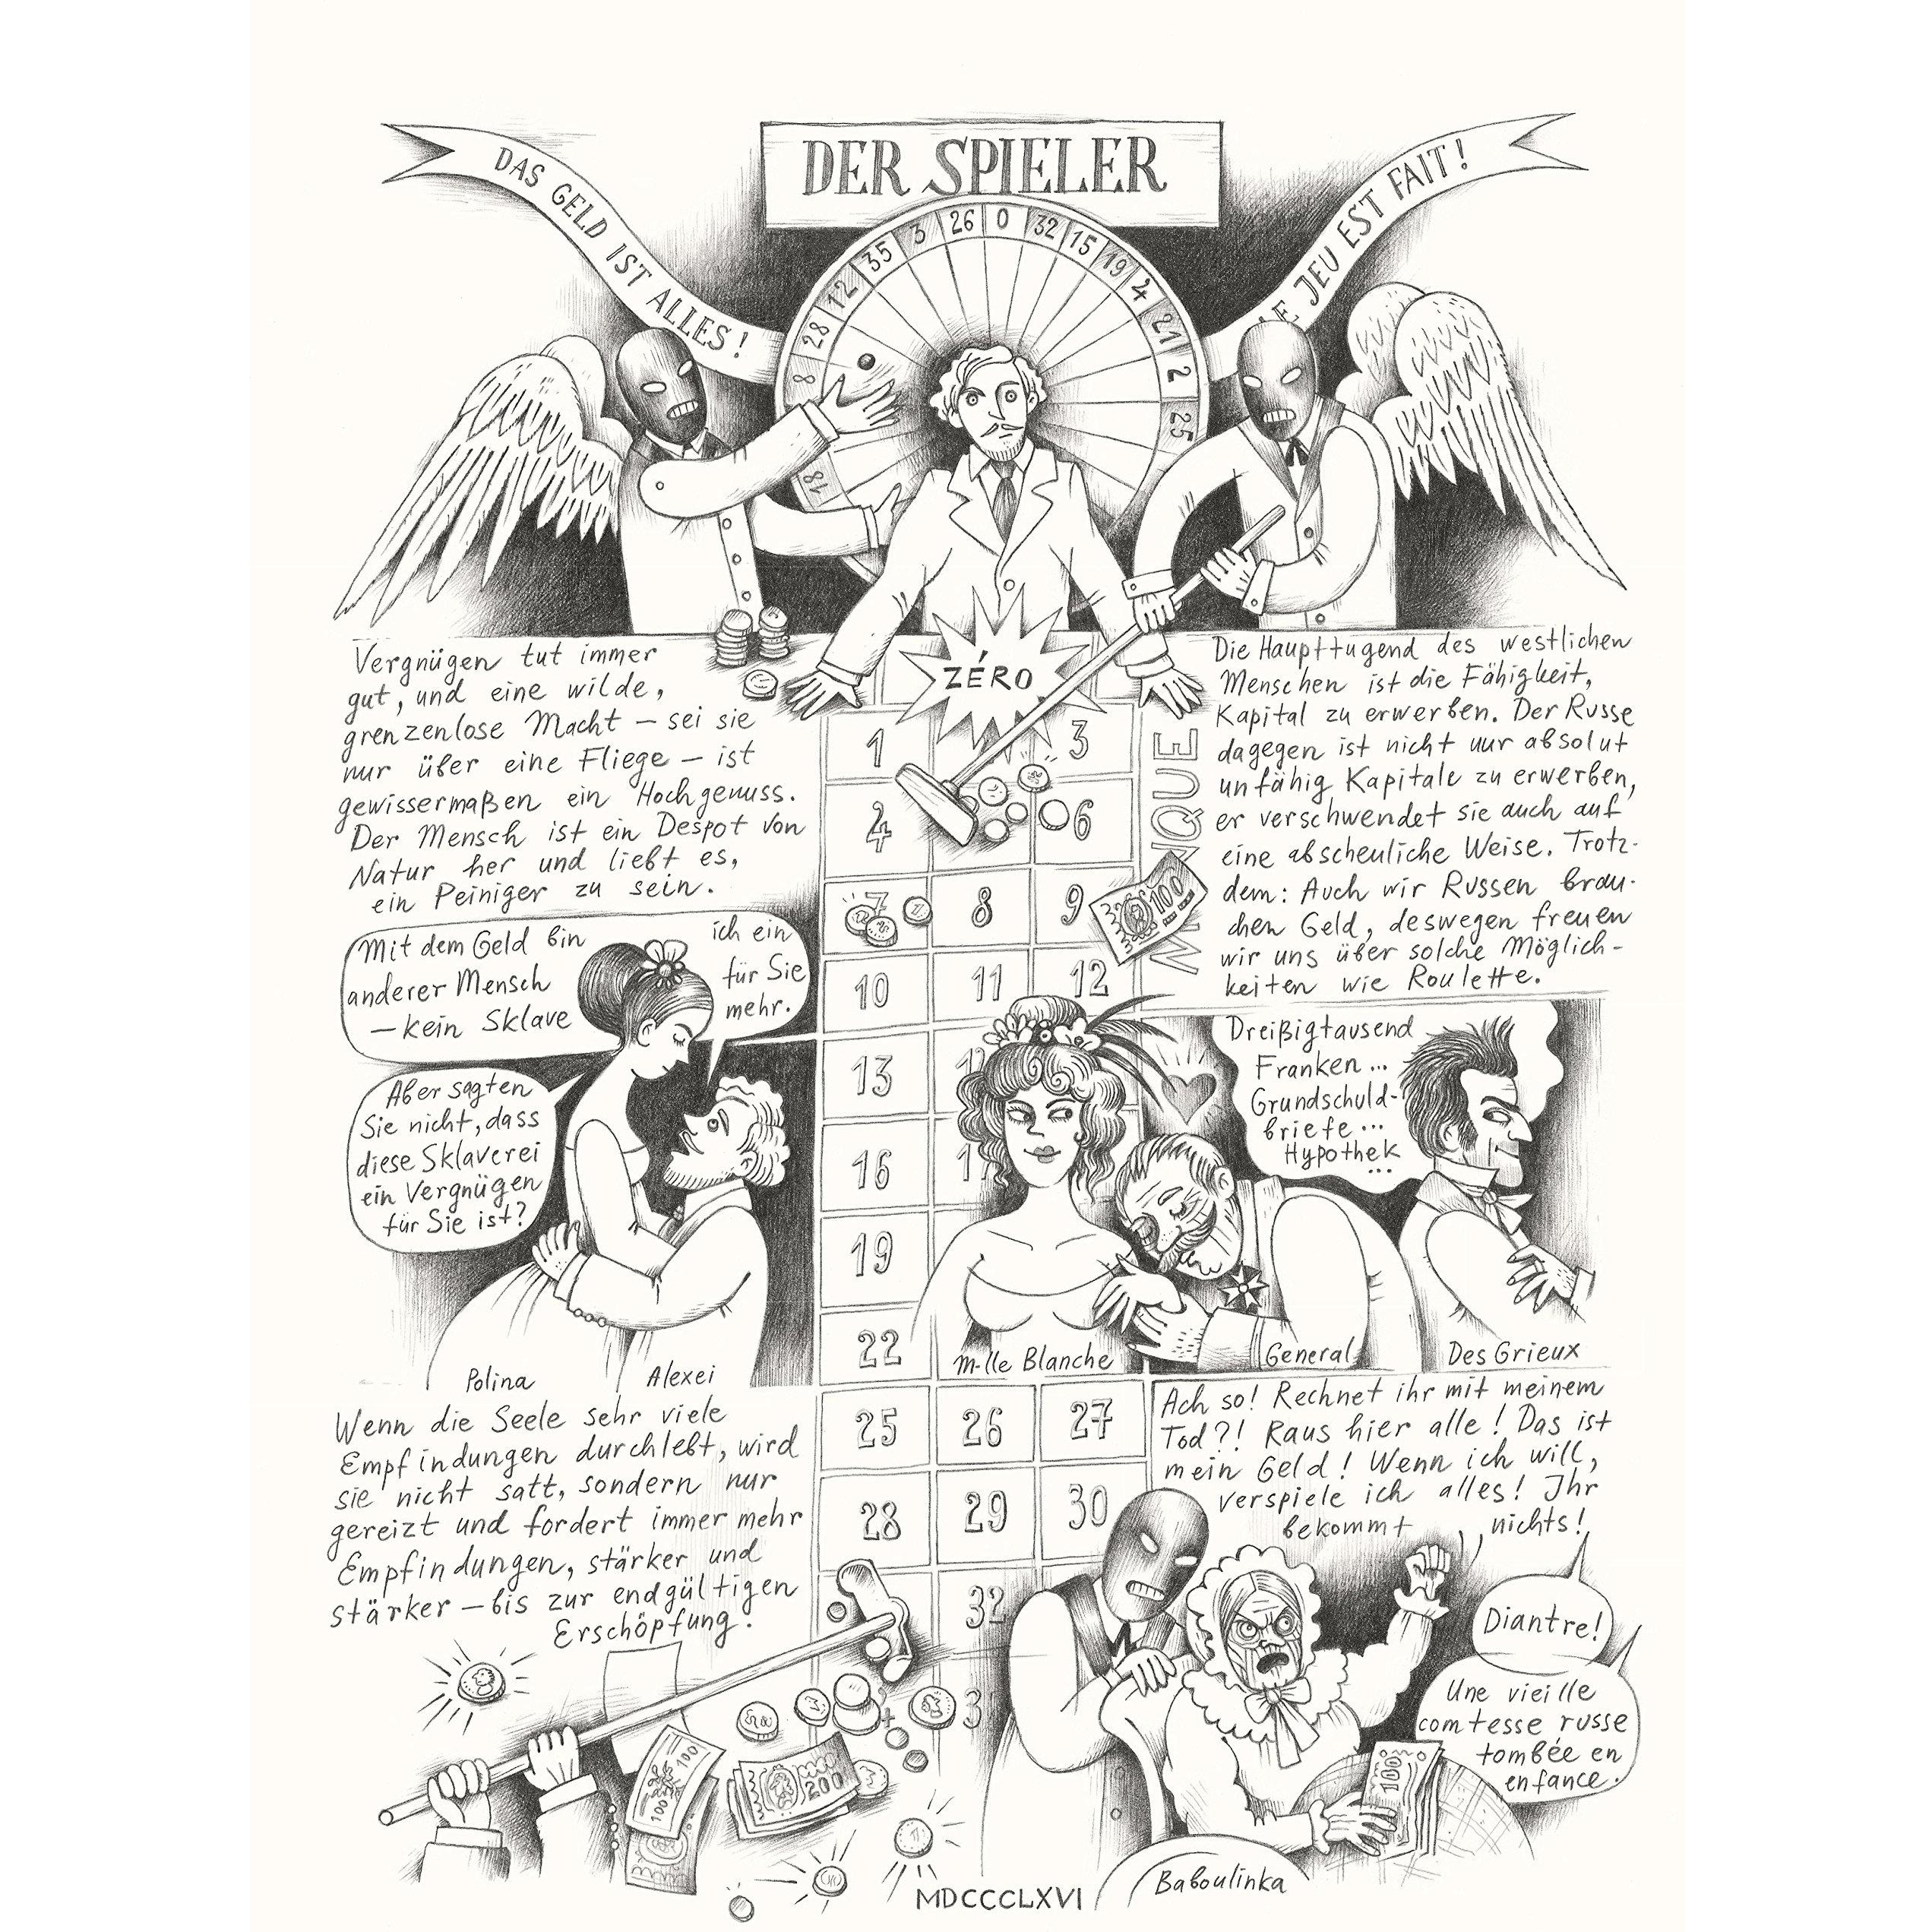 DER SPIELER
DAS GELD IST ALLES!
LE JEU EST FAIT!
18 8 28 12 35 3 26 0 32 15 19 4 21 2 25
Vergnügen tut immer
gut, und eine wilde,
grenzenlose Macht – sei sie
nur über eine Fliege – ist
gewissermaßen ein Hochgenuss.
Der Mensch ist ein Despot von
Natur her und liebt es,
ein Peiniger zu sein.
ZÉRO
Die Haupttugend des westlichen
Menschen ist die Fähigkeit,
Kapital zu erwerben. Der Russe
dagegen ist nicht nur absolut
unfähig Kapitale zu erwerben,
er verschwendet sie auch auf
eine abscheuliche Weise. Trotz-
dem: Auch wir Russen brau-
chen Geld, deswegen freuen
wir uns über solche Möglich-
keiten wie Roulette.
1 3
4 6
7 8 9
10 11 12
13
16
19
22
25 26 27
28 29 30
32
100
Mit dem Geld bin ich ein
anderer Mensch für Sie
– kein Sklave mehr.
Aber sagten
Sie nicht, dass
diese Sklaverei
ein Vergnügen
für Sie ist?
Polina
Alexei
Dreißigtausend
Franken...
Grundschuld-
briefe...
Hypothek
...
M-lle Blanche
General
Des Grieux
Wenn die Seele sehr viele
Empfindungen durchlebt, wird
sie nicht satt, sondern nur
gereizt und fordert immer mehr
Empfindungen, stärker und
stärker – bis zur endgültigen
Erschöpfung.
Ach so! Rechnet ihr mit meinem
Tod?! Raus hier alle! Das ist
mein Geld! Wenn ich will,
verspiele ich alles! Ihr
bekommt nichts!
Diantre!
Une vieille
comtesse russe
tombée en
enfance.
100
100
200
100
Baboulinka
MDCCCLXVI